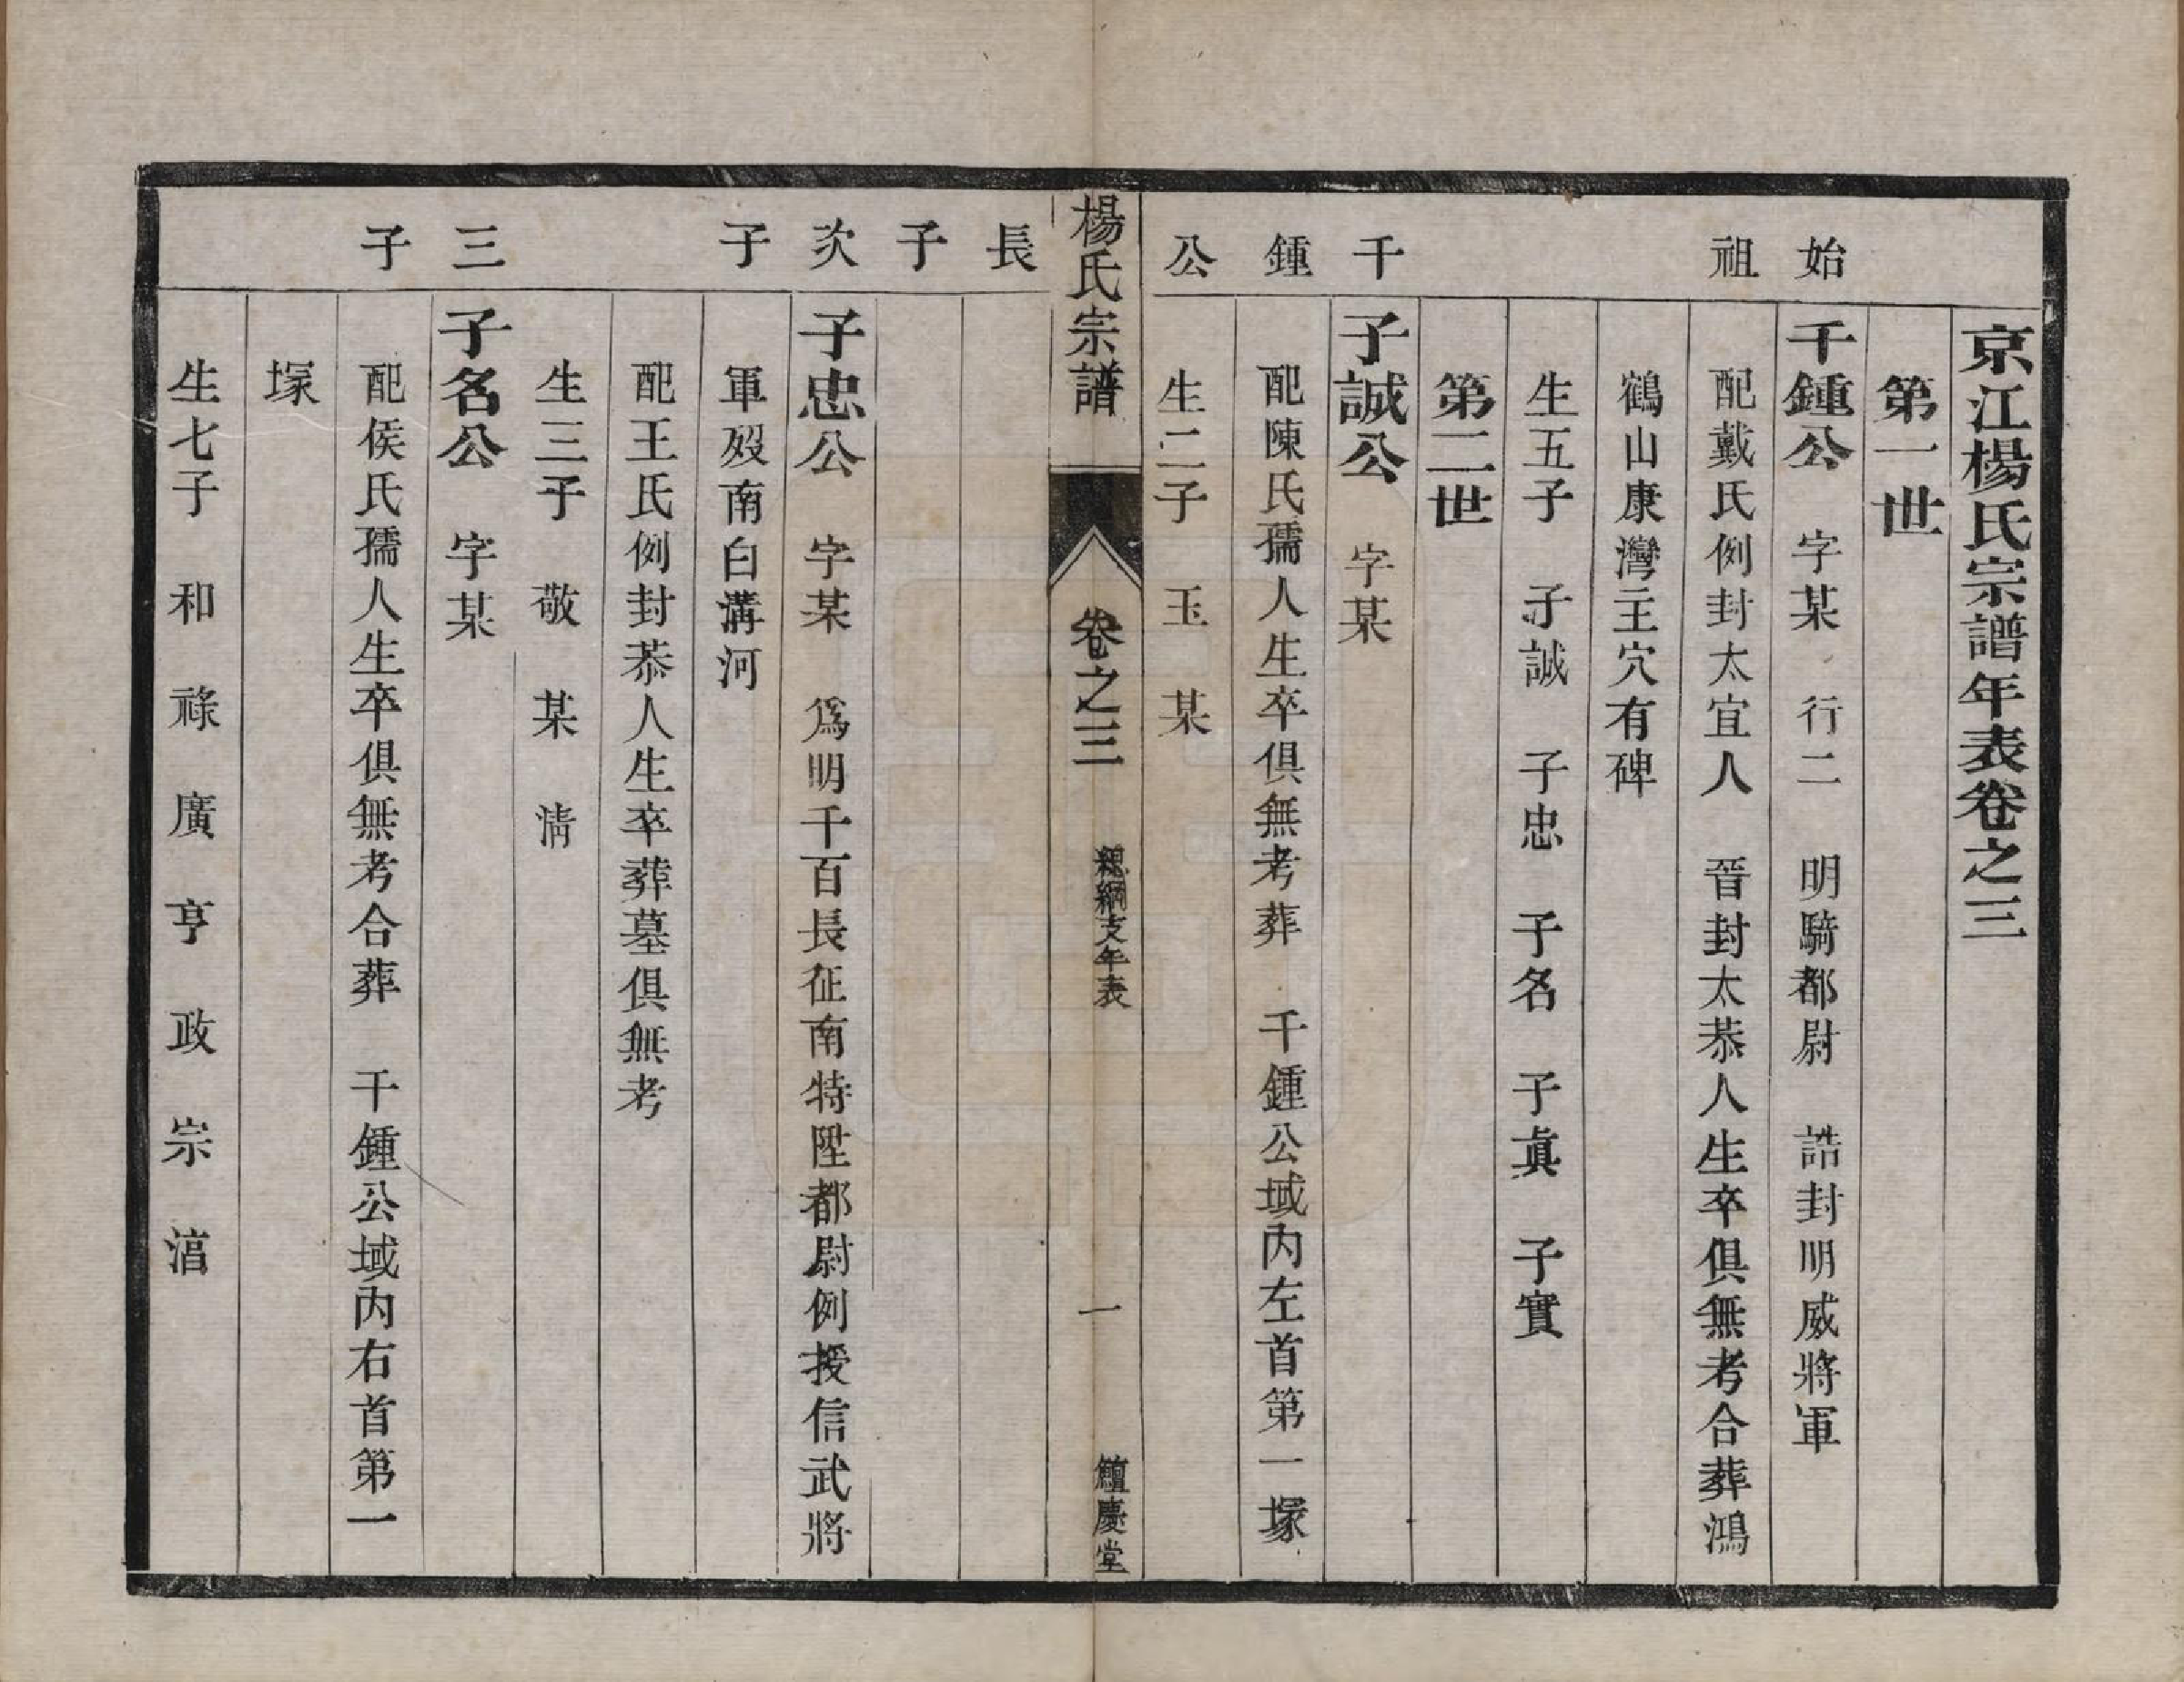 京江楊氏宗譜年表卷之三
第一世
始祖
千鍾公　字某　行二　明騎都尉　誥封明威將軍
配戴氏例封太宜人　晉封太恭人生卒俱無考合葬鴻
鶴山康灣主穴有碑
生五子　子誠　子忠　子名　子眞　子實
第二世
千鍾公長子
子誠公　字某
配陳氏孺人生卒俱無考葬　千鍾公域內左首第一塚
生二子　玉　某
楊氏宗譜　卷之三　總綱支年表　一　鱣慶堂
次子
子忠公　字某　爲明千百長征南特陞都尉例授信武將
軍歿南白溝河
配王氏例封恭人生卒葬墓俱無考
生三子　敬　某　淸
三子
子名公　字某
配侯氏孺人生卒俱無考合葬　千鍾公域內右首第一
塚
生七子　和　祿　廣　亨　政　宗